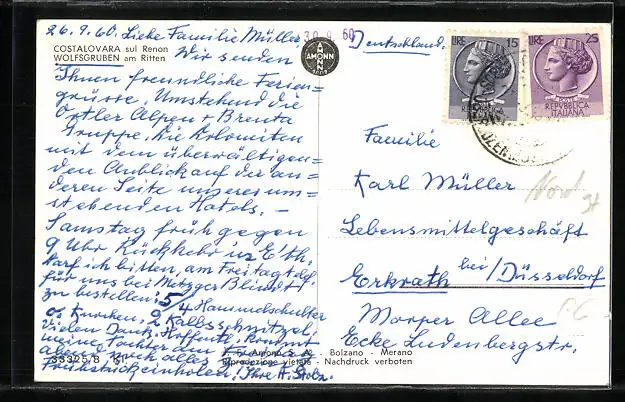 26.9.60. Liebe Familie Müller,
30.9.60
COSTALOVARA sul Renon
WOLFSGRUBEN am Ritten
Wir senden
Ihnen freundliche Ferien=
grüsse. Umstehend die
Ortler Alpen + Brenta
Gruppe. Die Dolomiten
mit dem überwältigen=
den Anblick auf der an=
deren Seite unseres um=
stehenden Hotels. –
Samstag früh gegen
9 Uhr Rückkehr in E'th.
Darf ich bitten, am Freitag
für uns bei Metzger
zu bestellen: 5/4 Hammelschulter
o. Knochen. 2 Kalbsschnitzel.
Vielen Dank. Hoffentl. kommt
meine Tochter
alles
Frühstück einholen! Ihre A. Stolz.
33325/8
Bolzano - Merano
Riproduzione vietata - Nachdruck verboten
AMONN
Deutschland.
LIRE 15
LIRE 25
POSTE REPVBBLICA ITALIANA
Familie
Karl Müller
Lebensmittelgeschäft
Erkrath bei/Düsseldorf
Morper Allee
Ecke Ludenbergstr.